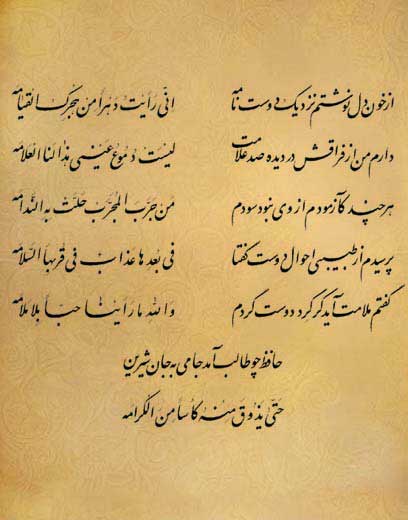 از خون دل نوشتم نزدیک دوست نامه اِنّی رَاَیتُ دَهراً مِن هِجرِکَ القیامه
دارم من از فراقش در دیده صد علامت لَیسَت دُموعُ عَینی هذا لنا العلامه
هر چند کآزمودم از وی نبود سودم مَن جَرَّبَ المُجَرَّب حَلَّت بِهِ النَّدامه
پرسیدم از طبیبی احوال دوست گفتا فی بُعدِها عَذابٌ فی قُربِها السَّلامه
گفتم ملامت آید گر گرد دوست گردم وَاللهِ ما رَاَینا حُبّاً بِلا مَلامه
حافظ چو طالب آمد جامی به جان شیرین
حَتّی یَذُوقَ مِنهُ کَأساً مِنَ الکرامه